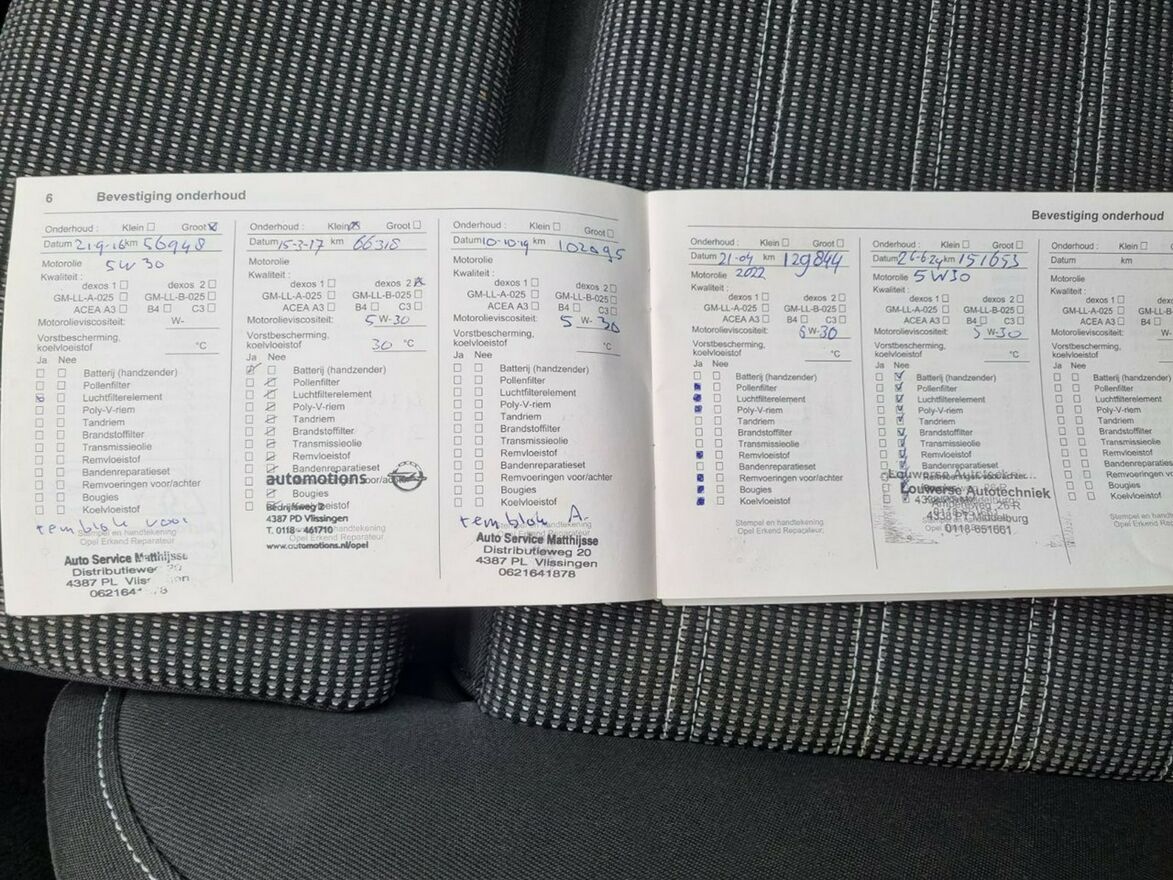 6 Bevestiging onderhoud
Onderhoud : Klein Groot
Datum 21-9-16 km 56948
Motorolie 5W30
Kwaliteit :
dexos 1 dexos 2
GM-LL-A-025 GM-LL-B-025
ACEA A3 B4 C3
Motorolieviscositeit: W-
Vorstbescherming,
koelvloeistof °C
Ja Nee
Batterij (handzender)
Pollenfilter
Luchtfilterelement
Poly-V-riem
Tandriem
Brandstoffilter
Transmissieolie
Remvloeistof
Bandenreparatieset
Remvoeringen voor/achter
Bougies
Koelvloeistof
remblok voor
Stempel en handtekening
Opel Erkend Reparateur
Auto Service Matthijsse
Distributieweg 20
4387 PL
Onderhoud : Klein Groot
Datum 15-2-17 km 66318
Motorolie
Kwaliteit :
dexos 1 dexos 2
GM-LL-A-025 GM-LL-B-025
ACEA A3 B4 C3
Motorolieviscositeit: 5 W-30
Vorstbescherming,
koelvloeistof 30 °C
Ja Nee
Batterij (handzender)
Pollenfilter
Luchtfilterelement
Poly-V-riem
Tandriem
Brandstoffilter
Transmissieolie
Remvloeistof
Bandenreparatieset
automotions
Bougies
Bedrijfsweg 2
4387 PD Vlissingen
T. 0118 - 461710
www.automotions.nl/opel
Onderhoud : Klein Groot
Datum 10-10-19 km 102095
Motorolie
Kwaliteit :
dexos 1 dexos 2
GM-LL-A-025 GM-LL-B-025
ACEA A3 B4 C3
Motorolieviscositeit: 5 W-30
Vorstbescherming,
koelvloeistof °C
Ja Nee
Batterij (handzender)
Pollenfilter
Luchtfilterelement
Poly-V-riem
Tandriem
Brandstoffilter
Transmissieolie
Remvloeistof
Bandenreparatieset
Remvoeringen voor/achter
Bougies
Koelvloeistof
remblok A.
Auto Service Matthijsse
Distributieweg 20
4387 PL Vlissingen
0621641878
Bevestiging onderhoud
Onderhoud : Klein Groot
Datum 21-04 km 129844
Motorolie 2022
Kwaliteit :
dexos 1 dexos 2
GM-LL-A-025 GM-LL-B-025
ACEA A3 B4 C3
Motorolieviscositeit: 5W-30
Vorstbescherming,
koelvloeistof °C
Ja Nee
Batterij (handzender)
Pollenfilter
Luchtfilterelement
Poly-V-riem
Tandriem
Brandstoffilter
Transmissieolie
Remvloeistof
Bandenreparatieset
Remvoeringen voor/achter
Bougies
Koelvloeistof
Stempel en handtekening
Opel Erkend Reparateur
Onderhoud : Klein Groot
Datum 26-6-24 km 151653
Motorolie 5W30
Kwaliteit :
dexos 1 dexos 2
GM-LL-A-025 GM-LL-B-025
ACEA A3 B4 C3
Motorolieviscositeit: 5 W-30
Vorstbescherming,
koelvloeistof °C
Ja Nee
Batterij (handzender)
Pollenfilter
Luchtfilterelement
Poly-V-riem
Tandriem
Brandstoffilter
Transmissieolie
Remvloeistof
Bandenreparatieset
Louwerse Autotechniek
Middelburg
0118-651661
Onderhoud : Klein
Datum km
Motorolie
Kwaliteit :
dexos 1
GM-LL-A-025
ACEA A3
Motorolieviscositeit:
Vorstbescherming,
koelvloeistof
Ja Nee
Batterij (handzender)
Pollenfilter
Luchtfilterelement
Poly-V-riem
Tandriem
Brandstoffilter
Transmissieolie
Remvloeistof
Bandenreparatieset
Remvoeringen voor/achter
Bougies
Koelvloeistof